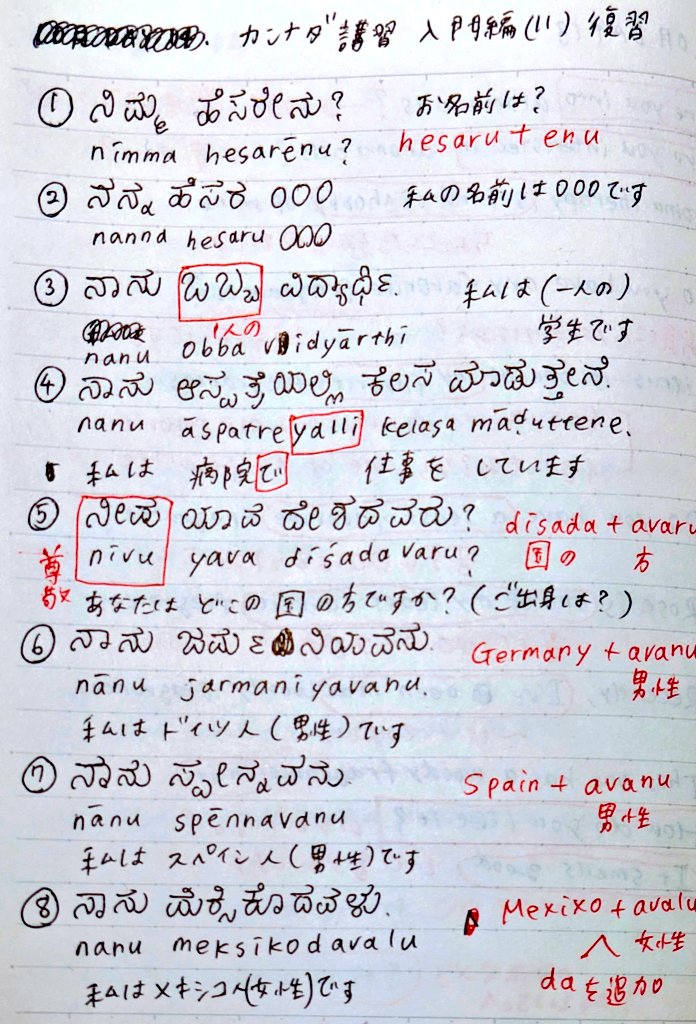 カンナダ講習 入門編(11) 復習
① ನಿಮ್ಮ ಹೆಸರೇನು? お名前は?
nimma hesarēnu? hesaru + enu
② ನನ್ನ ಹೆಸರ OOO 私の名前はOOOです
nanna hesaru OOO
③ ನಾನು ಒಬ್ಬ ವಿದ್ಯಾರ್ಥಿ. 私は(一人の)
1人の 学生です
nanu obba vidyārthi
④ ನಾನು ಆಸ್ಪತ್ರೆಯಲ್ಲಿ ಕೆಲಸ ಮಾಡುತ್ತೇನೆ.
nanu āspatreyalli kelasa māḍuttene.
私は 病院で 仕事を しています
⑤ ನೀವು ಯಾವ ದೇಶದವರು? diśada + avaru
尊敬 nīvu yava diśadavaru? 国の 方
あなたは どこの国の方ですか?(ご出身は?)
⑥ ನಾನು ಜರ್ಮನಿಯವನು. Germany + avanu
nānu jarmaniyavanu. 男性
私はドイツ人(男性)です
⑦ ನಾನು ಸ್ಪೇನ್ನವನು. Spain + avanu
nānu spēnnavanu 男性
私は スペイン人(男性)です
⑧ ನಾನು ಮೆಕ್ಸಿಕೊದವಳು. Mexixo + avalu
nanu meksikodavalu 女性
私はメキシコ人(女性)です daを追加